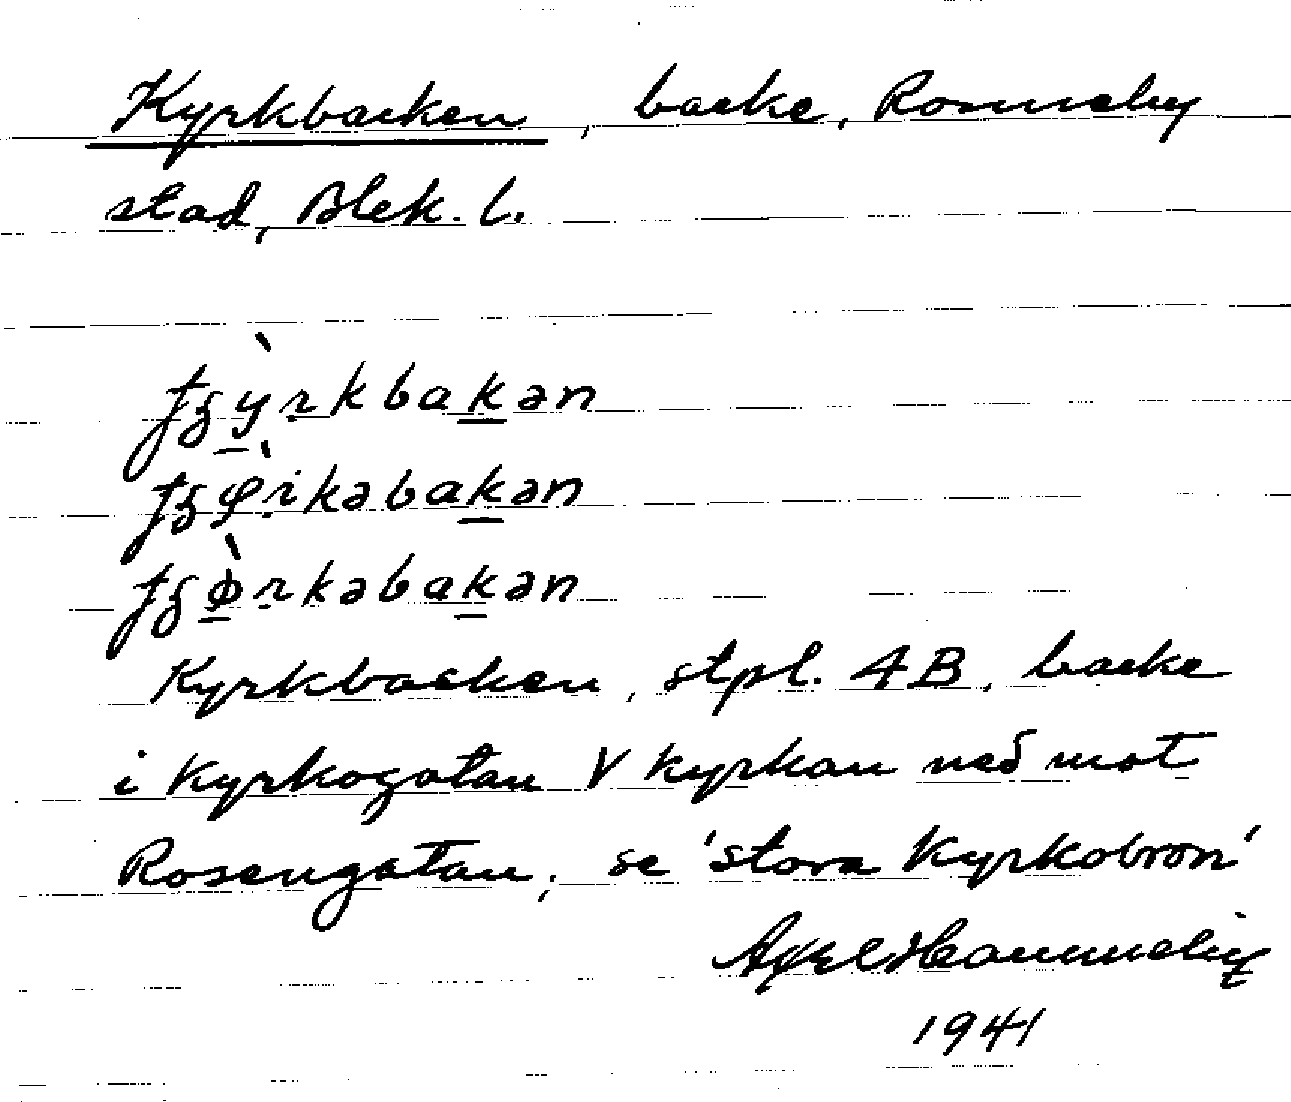 Kyrkbacken, backe, Ronneby
stad, Blek. l.
kyrkbakən
kørkəbakən
Kyrkbacken, stpl. 4B, backe
i Kyrkogatan V kyrkan ned mot
Rosengatan, se 'stora Kyrkobron'
Axel
1941